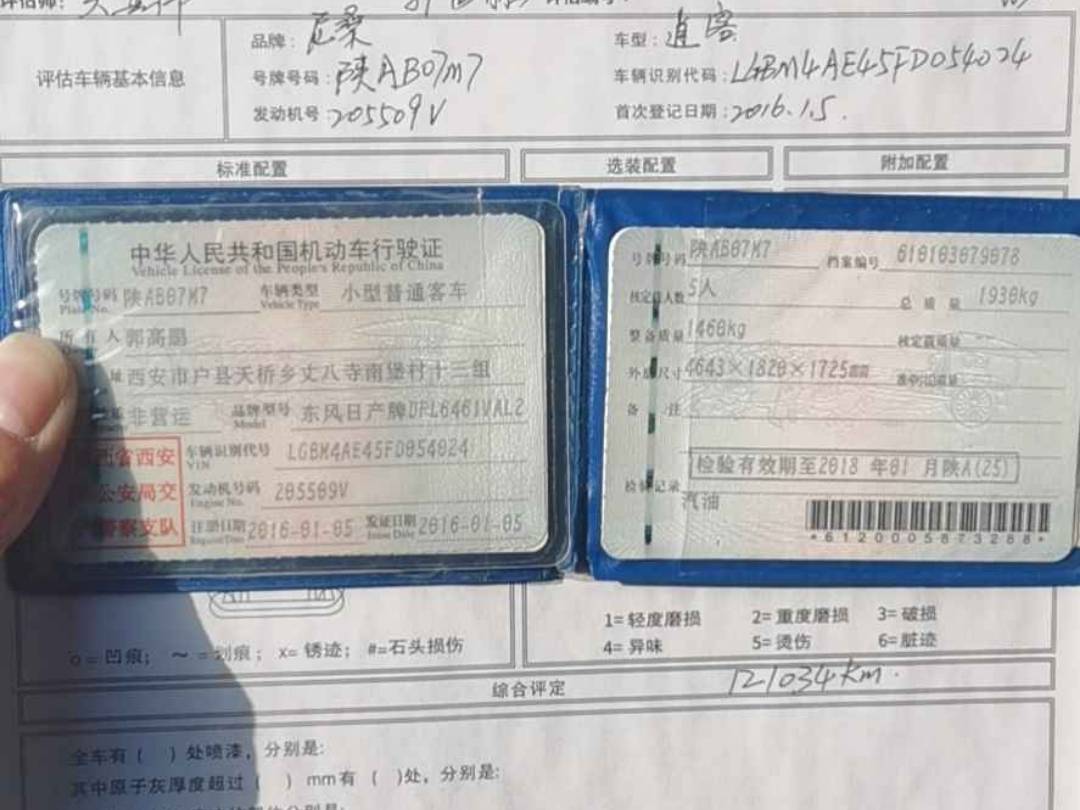 评估师:
品牌: 尼桑 车型: 逍客
评估车辆基本信息 号牌号码: 陕AB07M7 车辆识别代码: LGBM4AE45FD054024
发动机号: 205509V 首次登记日期: 2016.1.5.
标准配置 选装配置 附加配置
中华人民共和国机动车行驶证
Vehicle License of the People's Republic of China
号牌号码 陕AB07M7 车辆类型 小型普通客车
Plate No. Vehicle Type
所有人 郭高鹏
址 西安市户县天桥乡丈八寺南堡村十三组
非营运 品牌型号 东风日产牌DFL6461VAL2
Model
西省西安 车辆识别代号 LGBM4AE45FD054024
VIN
公安局交 发动机号码 205509V
Engine No.
警察支队 注册日期 2016-01-05 发证日期 2016-01-05
Register Date Issue Date
号牌号码 陕AB07M7 档案编号 610103079078
核定载人数 5人 总质量 1930kg
整备质量 1460kg 核定载质量
外廓尺寸 4643×1820×1725mm 准牵引总质量
备注
检验有效期至2018 年01 月陕A(25)
检验记录
汽油
*6120005873288*
1= 轻度磨损 2= 重度磨损 3= 破损
o = 凹痕; ~ = 划痕; x= 锈迹; #=石头损伤
4= 异味 5= 烫伤 6= 脏迹
综合评定 121034km.
全车有 ( ) 处喷漆, 分别是:
其中原子灰厚度超过 ( ) mm有 ( )处, 分别是: